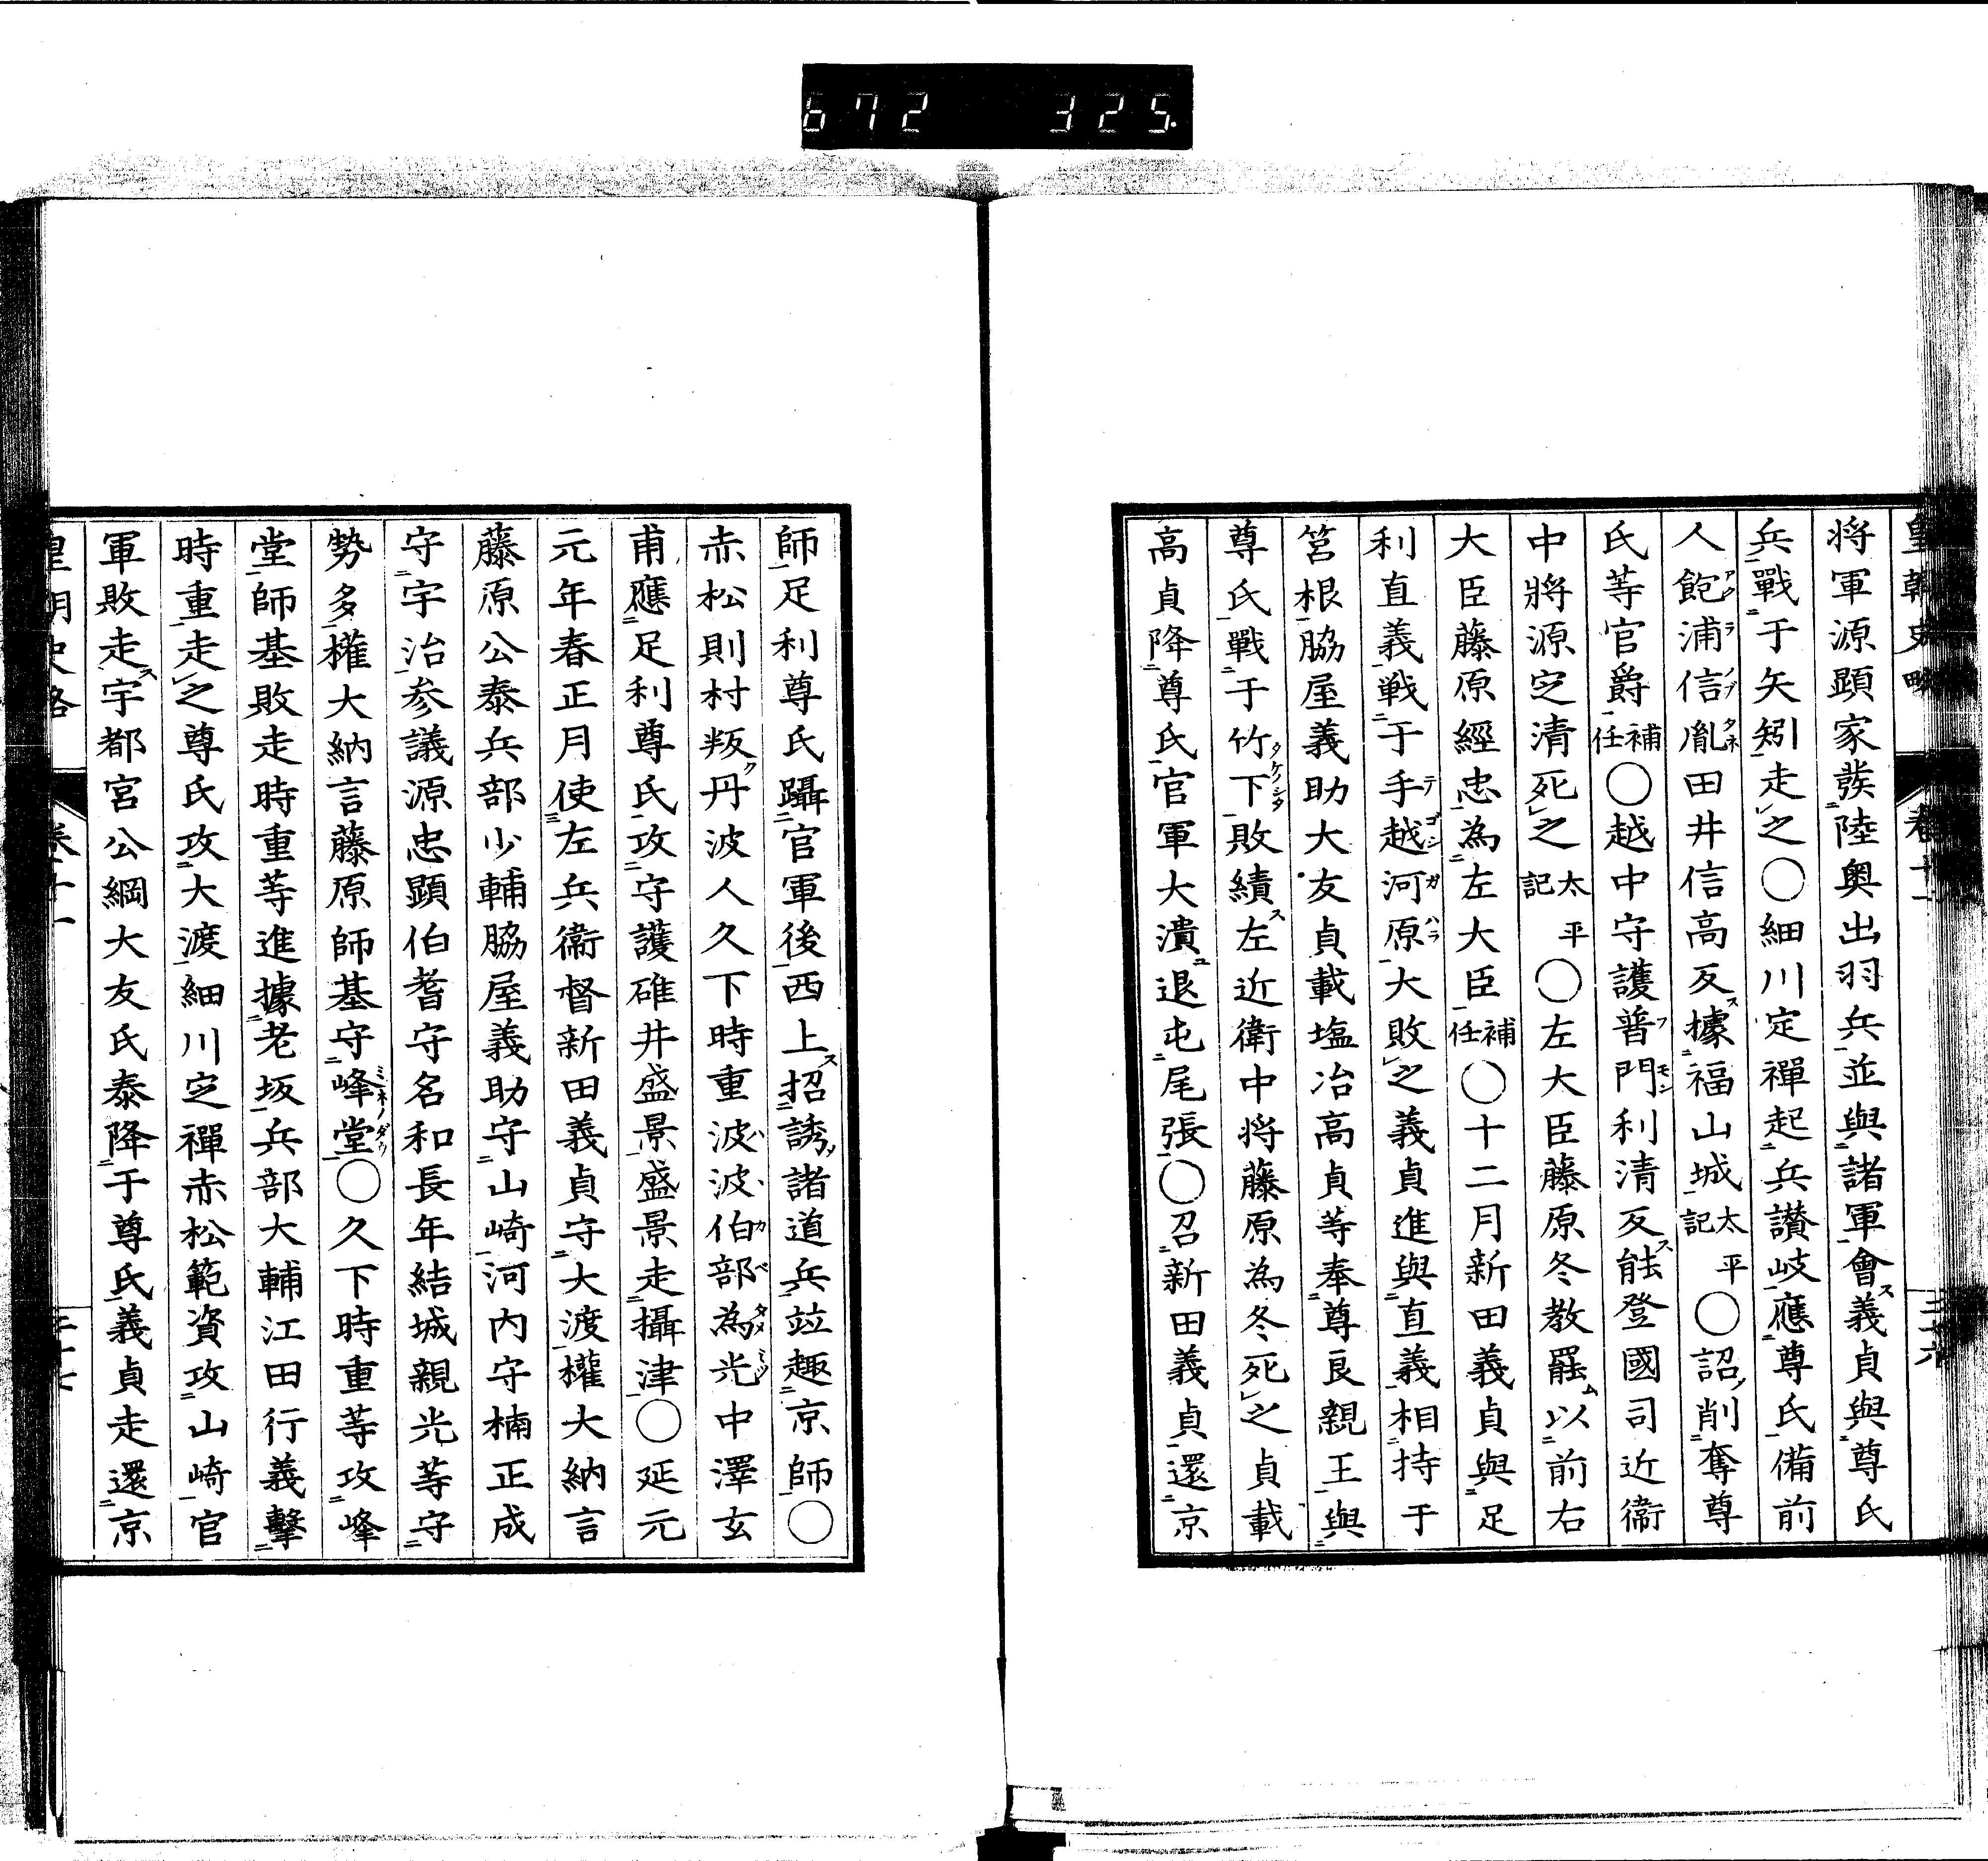 672 325
皇朝史略 卷十一 三十六
将軍源顕家發陸奥出羽兵並與諸軍會義貞與尊氏
兵戰于矢矧走之○細川定禪起兵讃岐應尊氏備前
人飽浦信胤田井信高反據福山城太平記○詔削奪尊
氏等官爵補任○越中守護普門利清反能登國司近衞
中將源定清死之太平記○左大臣藤原冬教罷以前右
大臣藤原經忠為左大臣補任○十二月新田義貞與足
利直義戦于手越河原大敗之義貞進與直義相持于
筥根脇屋義助大友貞載塩冶高貞等奉尊良親王與
尊氏戰于竹下敗績左近衛中将藤原為冬死之貞載
高貞降尊氏官軍大潰退屯尾張○召新田義貞還京
師足利尊氏躡官軍後西上招誘諸道兵竝趣京師○
赤松則村叛丹波人久下時重波波伯部為光中澤玄
甫應足利尊氏攻守護碓井盛景盛景走攝津○延元
元年春正月使左兵衞督新田義貞守大渡權大納言
藤原公泰兵部少輔脇屋義助守山崎河内守楠正成
守宇治参議源忠顕伯耆守名和長年結城親光等守
勢多權大納言藤原師基守峰堂○久下時重等攻峰
堂師基敗走時重等進據老坂兵部大輔江田行義擊
時重走之尊氏攻大渡細川定禪赤松範資攻山崎官
軍敗走宇都宮公綱大友氏泰降于尊氏義貞走還京
皇朝史略 卷十一 三十七